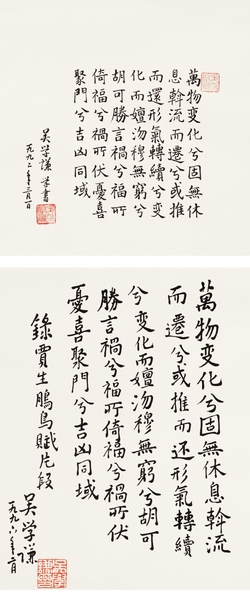 萬物变化兮固無休
息斡流而遷兮或推
而還形氣轉續兮变
化而嬗沕穆無窮兮
胡可勝言禍兮福所
倚福兮禍所伏憂喜
聚門兮吉凶同域
吴学谦学書
一九九二年三月一日
萬物变化兮固無休息斡流
而遷兮或推而还形氣轉續
兮变化而嬗沕穆無窮兮胡可
勝言禍兮福所倚福兮禍所伏
憂喜聚門兮吉凶同域
錄賈生鵩鳥賦片段
吴学谦
一九九六年二月